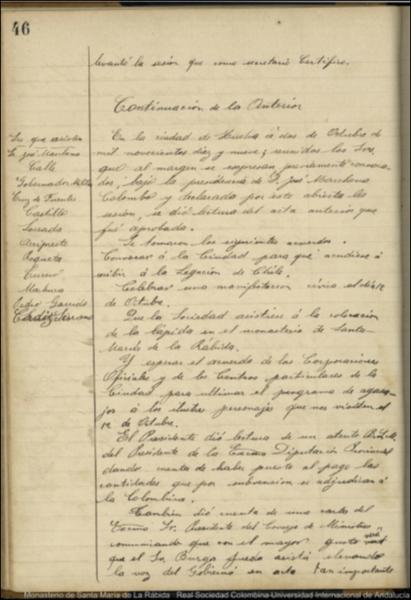 46
levantó la sesión que como secretario Certifico.
Continuación de la Anterior
En la ciudad de Huelva á dos de Octubre de
mil novecientos diez y nueve, reunidos los Sres
que al margen se expresan previamente convoca-
dos, bajo la presidencia de D. José Marchena
Colombo y declarada por este abierta la
sesión, se dió lectura del acta anterior que
fué aprobada.
Se tomaron los siguientes acuerdos.
Convocar á la Ciudad para que acudiese á
recibir á la Legación de Chile.
Celebrar una manifestación cívica el doce
de Octubre.
Que la Sociedad asistiera á la colocación
de la lápida en el monasterio de Santa
María de la Rábida.
Y esperar el acuerdo de las Corporaciones
Oficiales y de los Centros particulares de la
Ciudad para ultimar el programa de agasa-
jos á los ilustres personajes que nos visiten el
12 de Octubre.
El Presidente dió lectura de un atento B.L.M.
del Presidente de la Excma Diputación Provincial
dando cuenta de haber puesto al pago las
cantidades que por subvención se adjudican á
la Colombina.
También dió cuenta de una carta del
Excmo Sr. Presidente del Consejo de Ministros
comunicando que con el mayor gusto
que el Sr. Burgos pueda asistir llevando
la voz del Gobierno en acto tan importante
Sres que asisten
Calle
Gobernador Militar
Cruz de Fuentes
Castillo
Losada
Arcipreste
Roqueta
Pedro Garrido
Cádiz Serrano
Monasterio de Santa María de La Rábida · Real Sociedad Colombina-Universidad Internacional de Andalucía